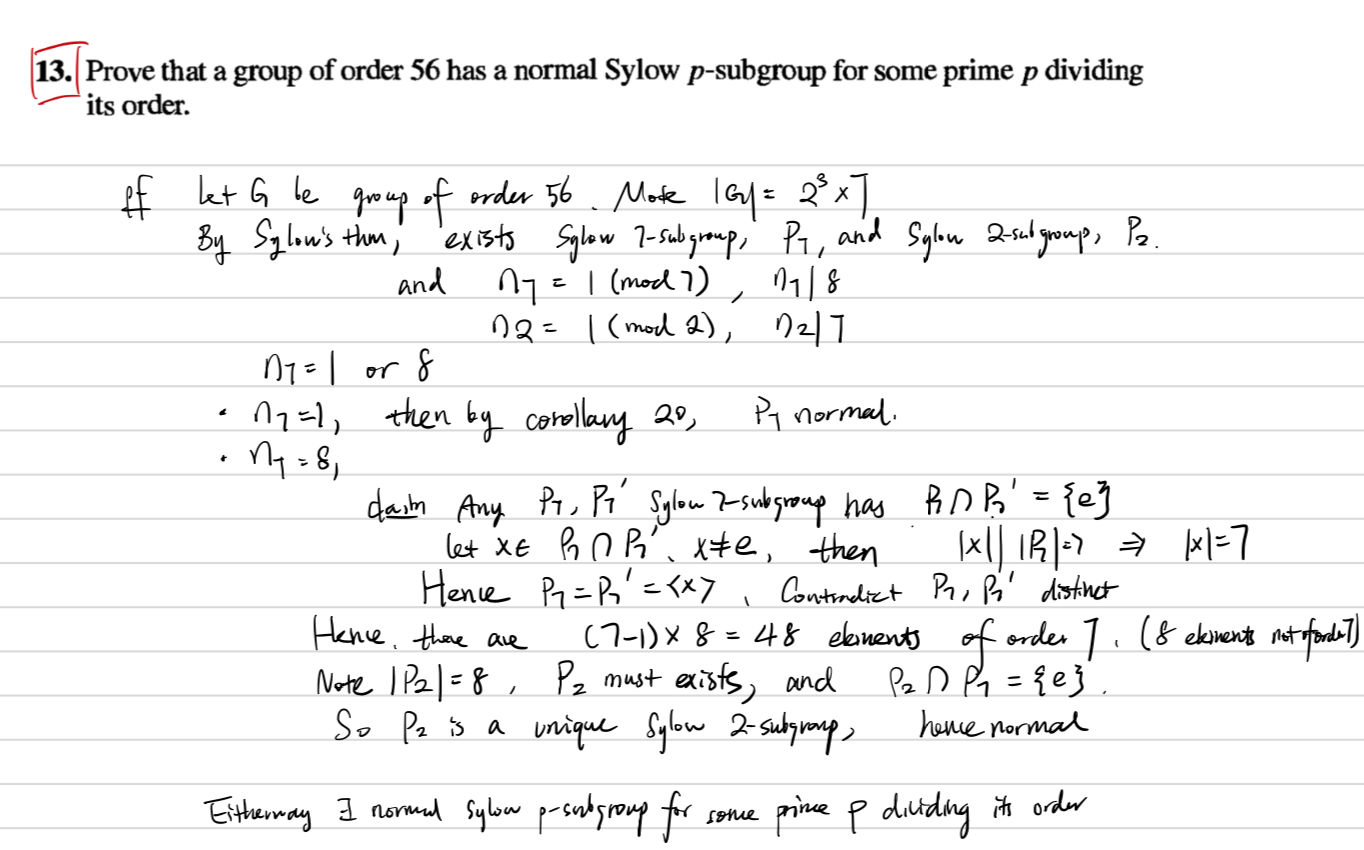 13. Prove that a group of order 56 has a normal Sylow p-subgroup for some prime p dividing
its order.
pf let G be group of order 56. Note |G| = 2³ × 7
By Sylow's thm, exists Sylow 7-subgroup, P₇, and Sylow 2-subgroup, P₂.
and n₇ = 1 (mod 7), n₇ | 8
n₂ = 1 (mod 2), n₂ | 7
n₇ = 1 or 8
· n₇ = 1, then by corollary 20, P₇ normal.
· n₇ = 8,
claim Any P₇, P₇' Sylow 7-subgroup has P₇ ∩ P₇' = {e}
let x ∈ P₇ ∩ P₇', x ≠ e, then |x| | |P₇| = 7 ⇒ |x| = 7
Hence P₇ = P₇' = <x>, Contradict P₇, P₇' distinct
Hence, there are (7-1) × 8 = 48 elements of order 7. (8 elements not of order 7)
Note |P₂| = 8, P₂ must exists, and P₂ ∩ P₇ = {e}.
So P₂ is a unique Sylow 2-subgroup, hence normal
Eitherway ∃ normal Sylow p-subgroup for some prime p dividing its order